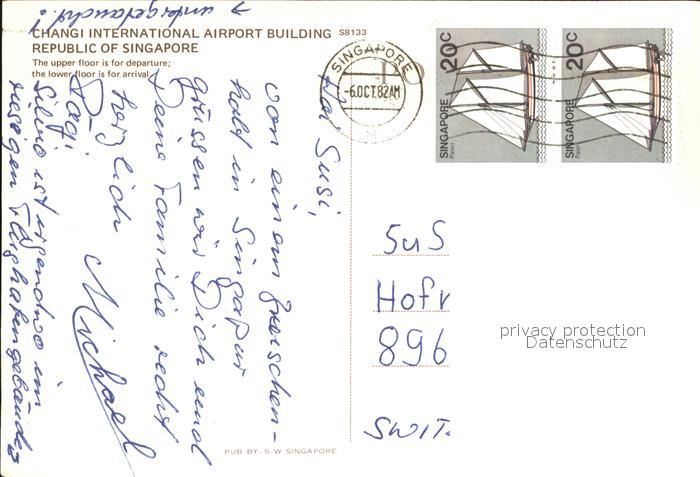 → untergetaucht.!!
CHANGI INTERNATIONAL AIRPORT BUILDING S8133
REPUBLIC OF SINGAPORE
The upper floor is for departure;
the lower floor is for arrival.
SINGAPORE
-6.OCT.82AM
SINGAPORE 20C
Palari
SINGAPORE 20C
Palari
Hoi Susi,
von einem Zwischen-
halt in Singapur
grüssen wir Dich und
Deine Familie recht
herzlich
Dägi
Michael
Silvio ist irgendwo im
riesigen Flughafengebäude
SuS
Hofr
896
SWIT.
privacy protection
Datenschutz
PUB BY:- S. W. SINGAPORE